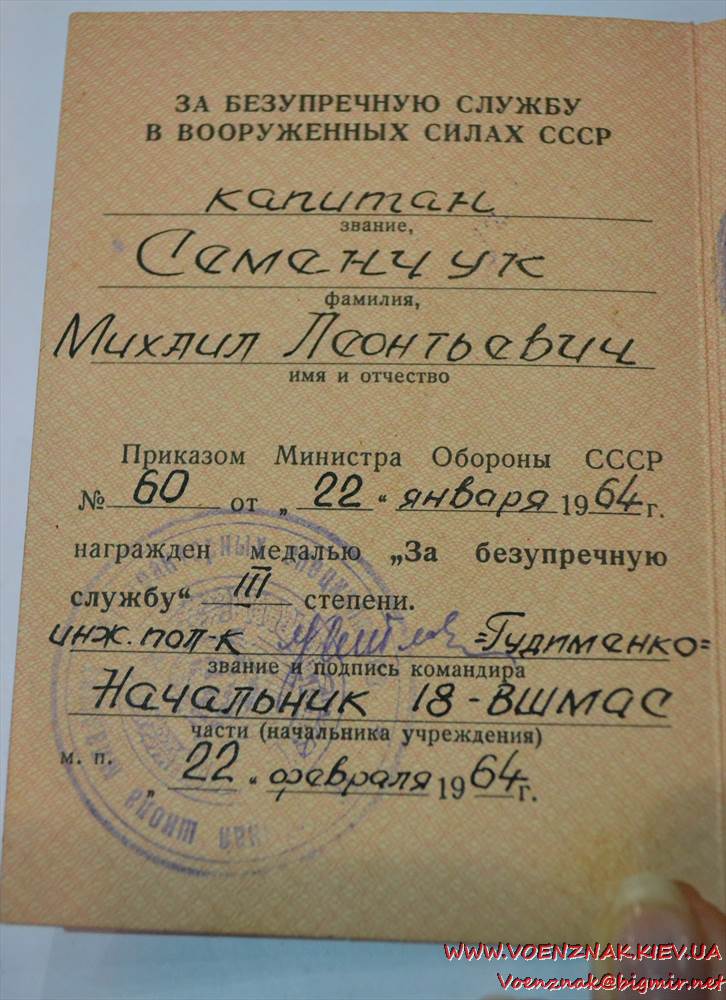 ЗА БЕЗУПРЕЧНУЮ СЛУЖБУ
В ВООРУЖЕННЫХ СИЛАХ СССР
капитан
звание,
Семенчук
фамилия,
Михаил Леонтьевич
имя и отчество
Приказом Министра Обороны СССР
№ 60 от „ 22 “ января 1964 г.
награжден медалью „За безупречную
службу“ III степени.
инж. пол-к =Гудименко=
звание и подпись командира
Начальник 18-ВШМАС
части (начальника учреждения)
м. п.
„ 22 “ февраля 1964 г.
школа
WWW.VOENZNAK.KIEV.UA
Voenznak@bigmir.net